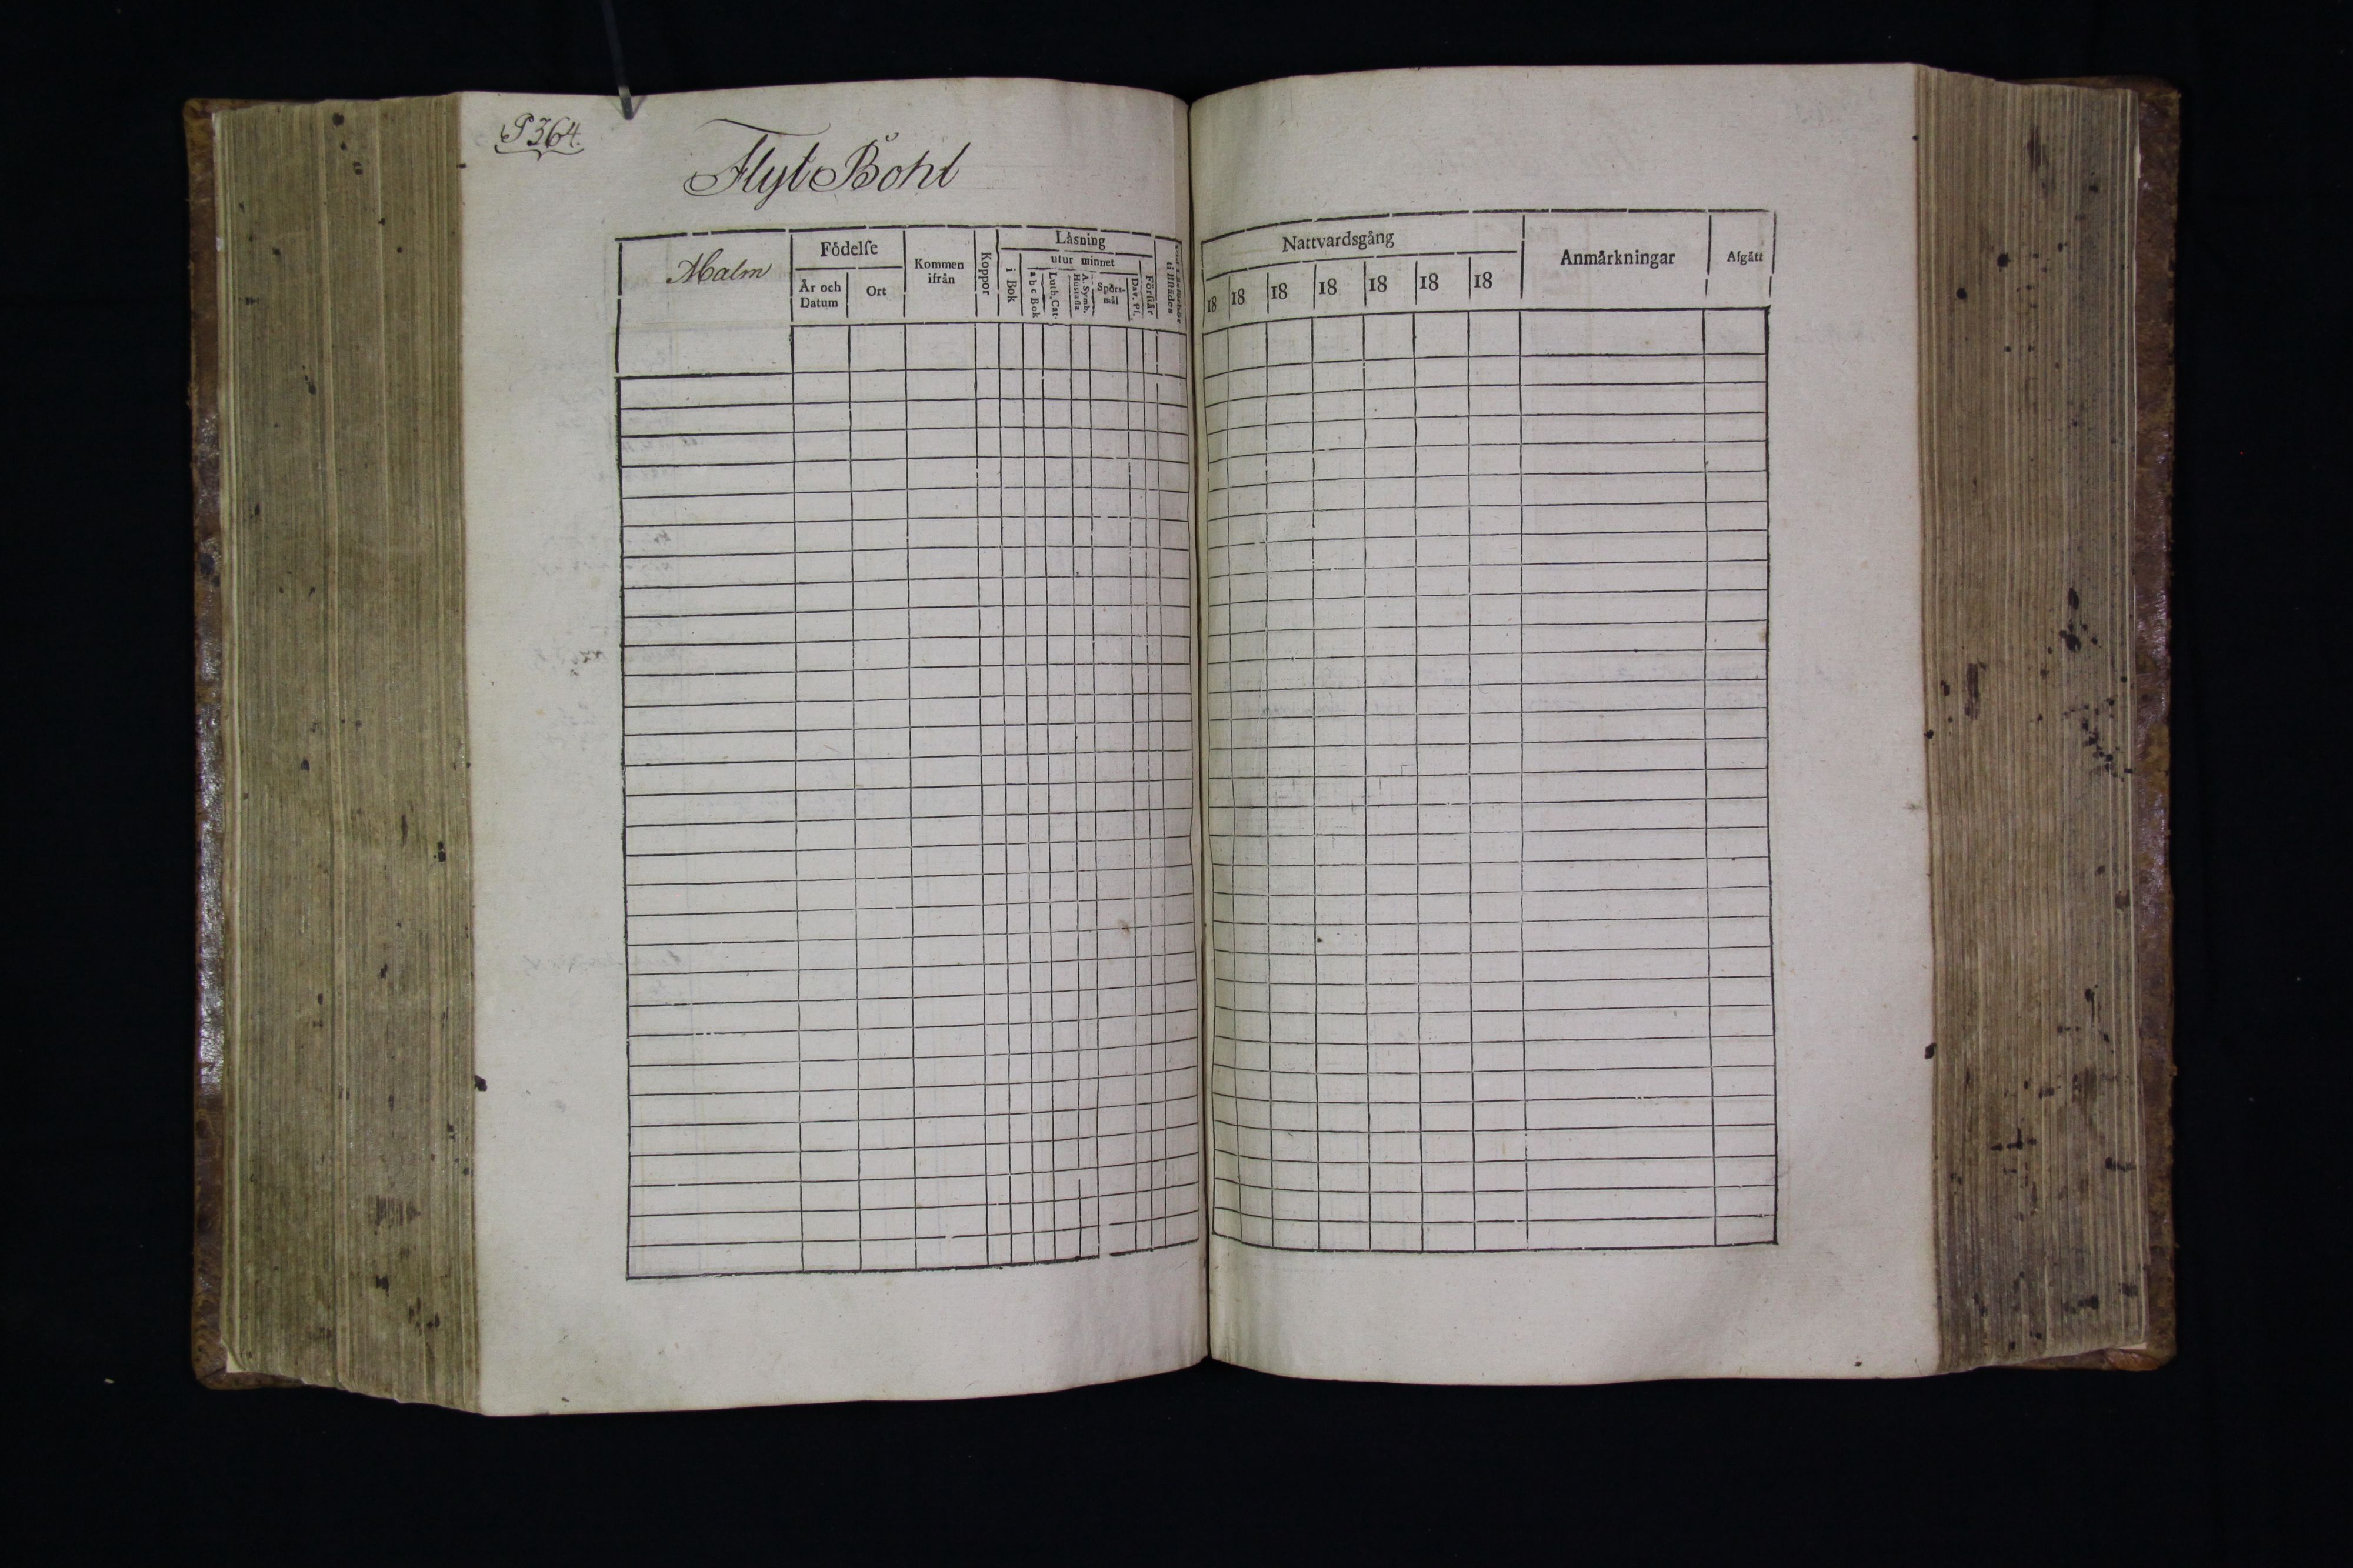 P 364.
Flyt Bohl
Malm
Födelſe
År och Datum
Ort
Kommen ifrån
Koppor
Läsning
i Bok
utur minnet
a b c Bok
Luth. Cat.
A. Symb. Hustafla
Spörs-mål
Dav. Pſ.
Förſtår
Nattvardsgång
18 18 18 18 18 18 18
Anmärkningar
Afgått